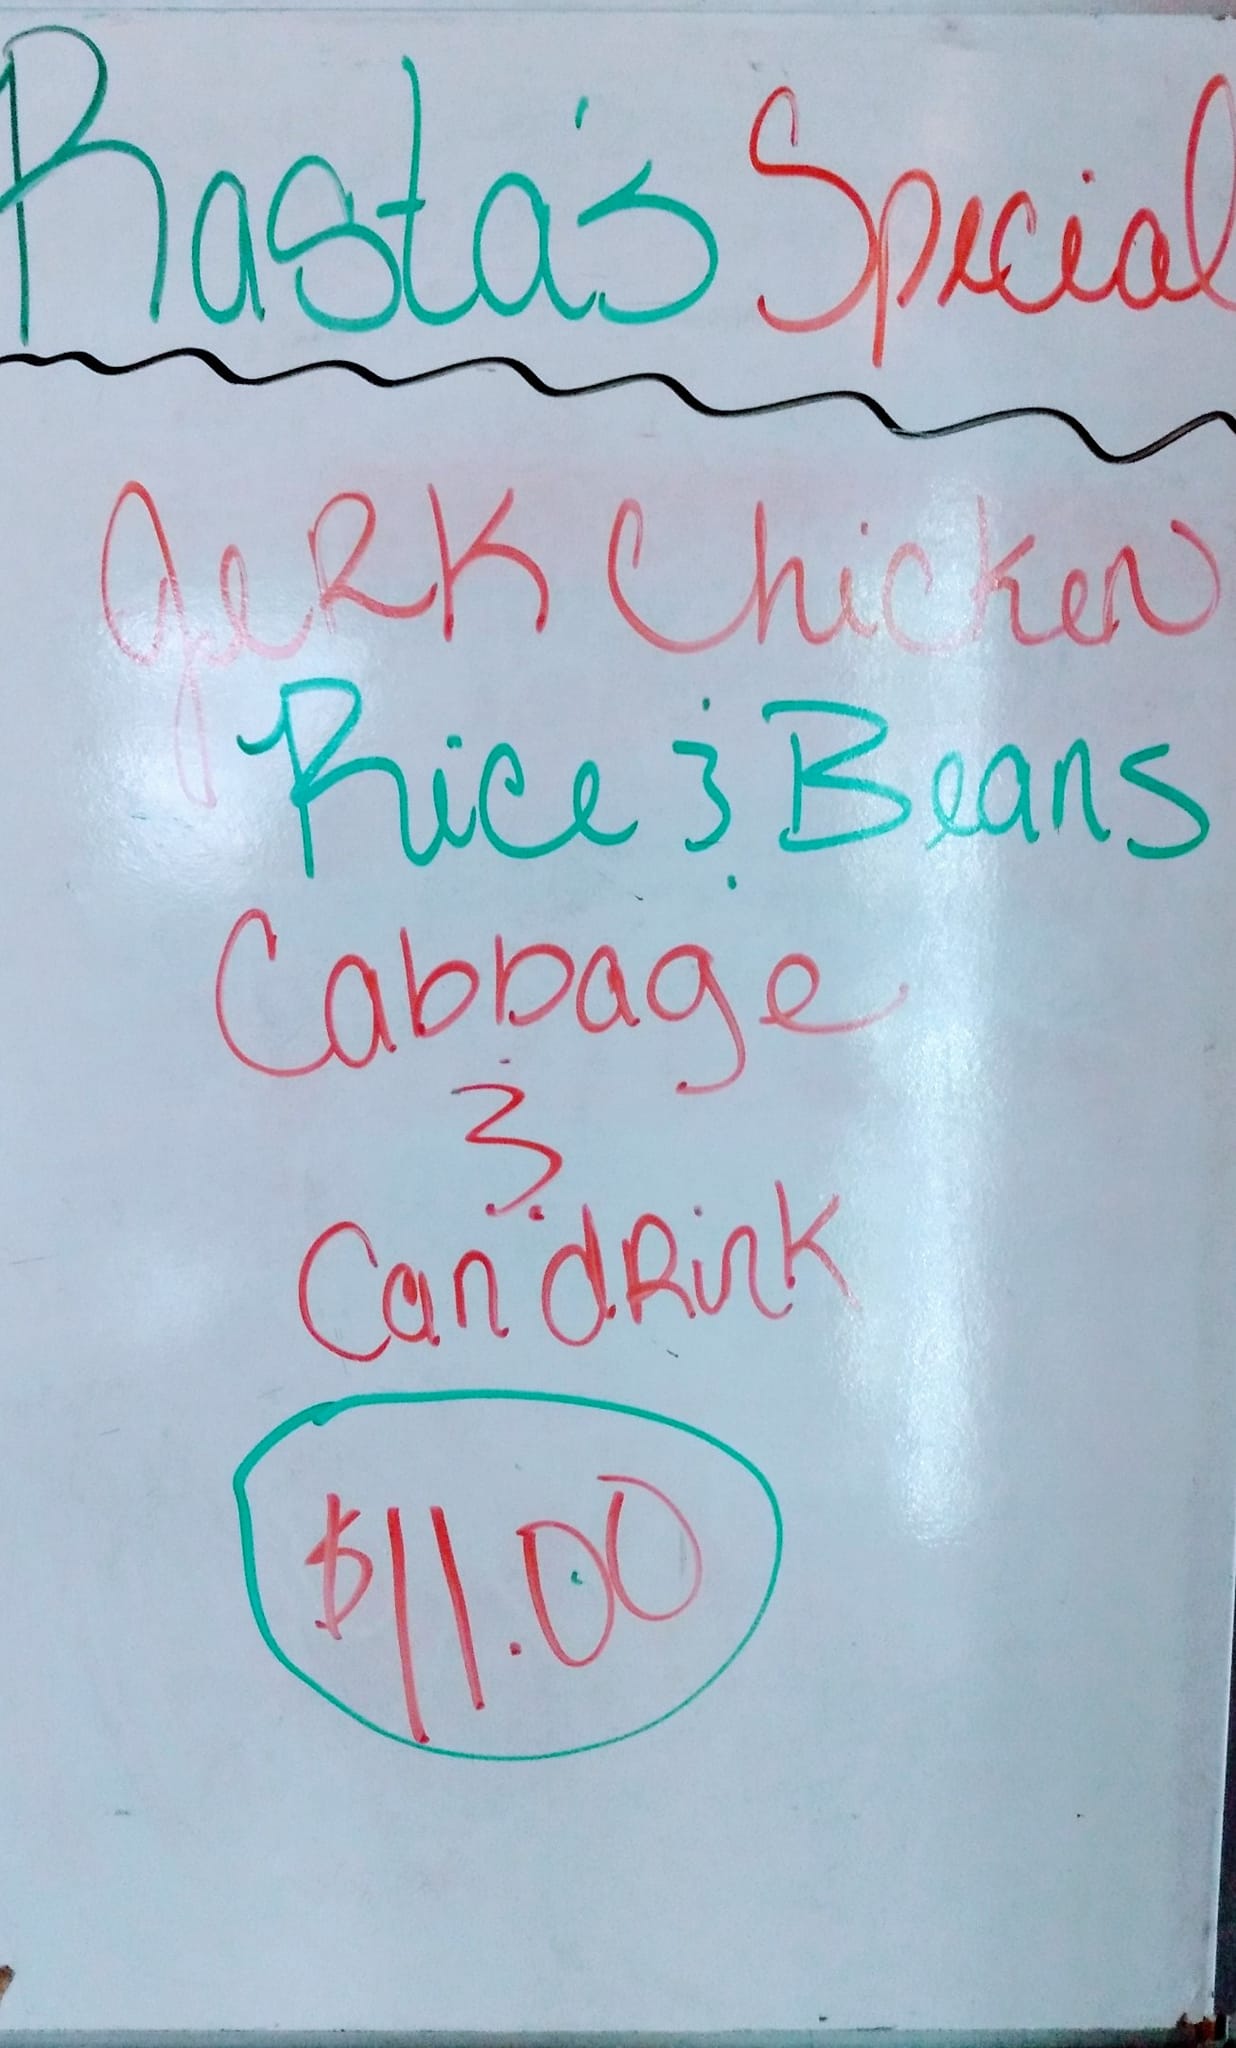 Rasta's Special
JeRK Chicken
Rice & Beans
Cabbage
&
Can dRink
$11.00